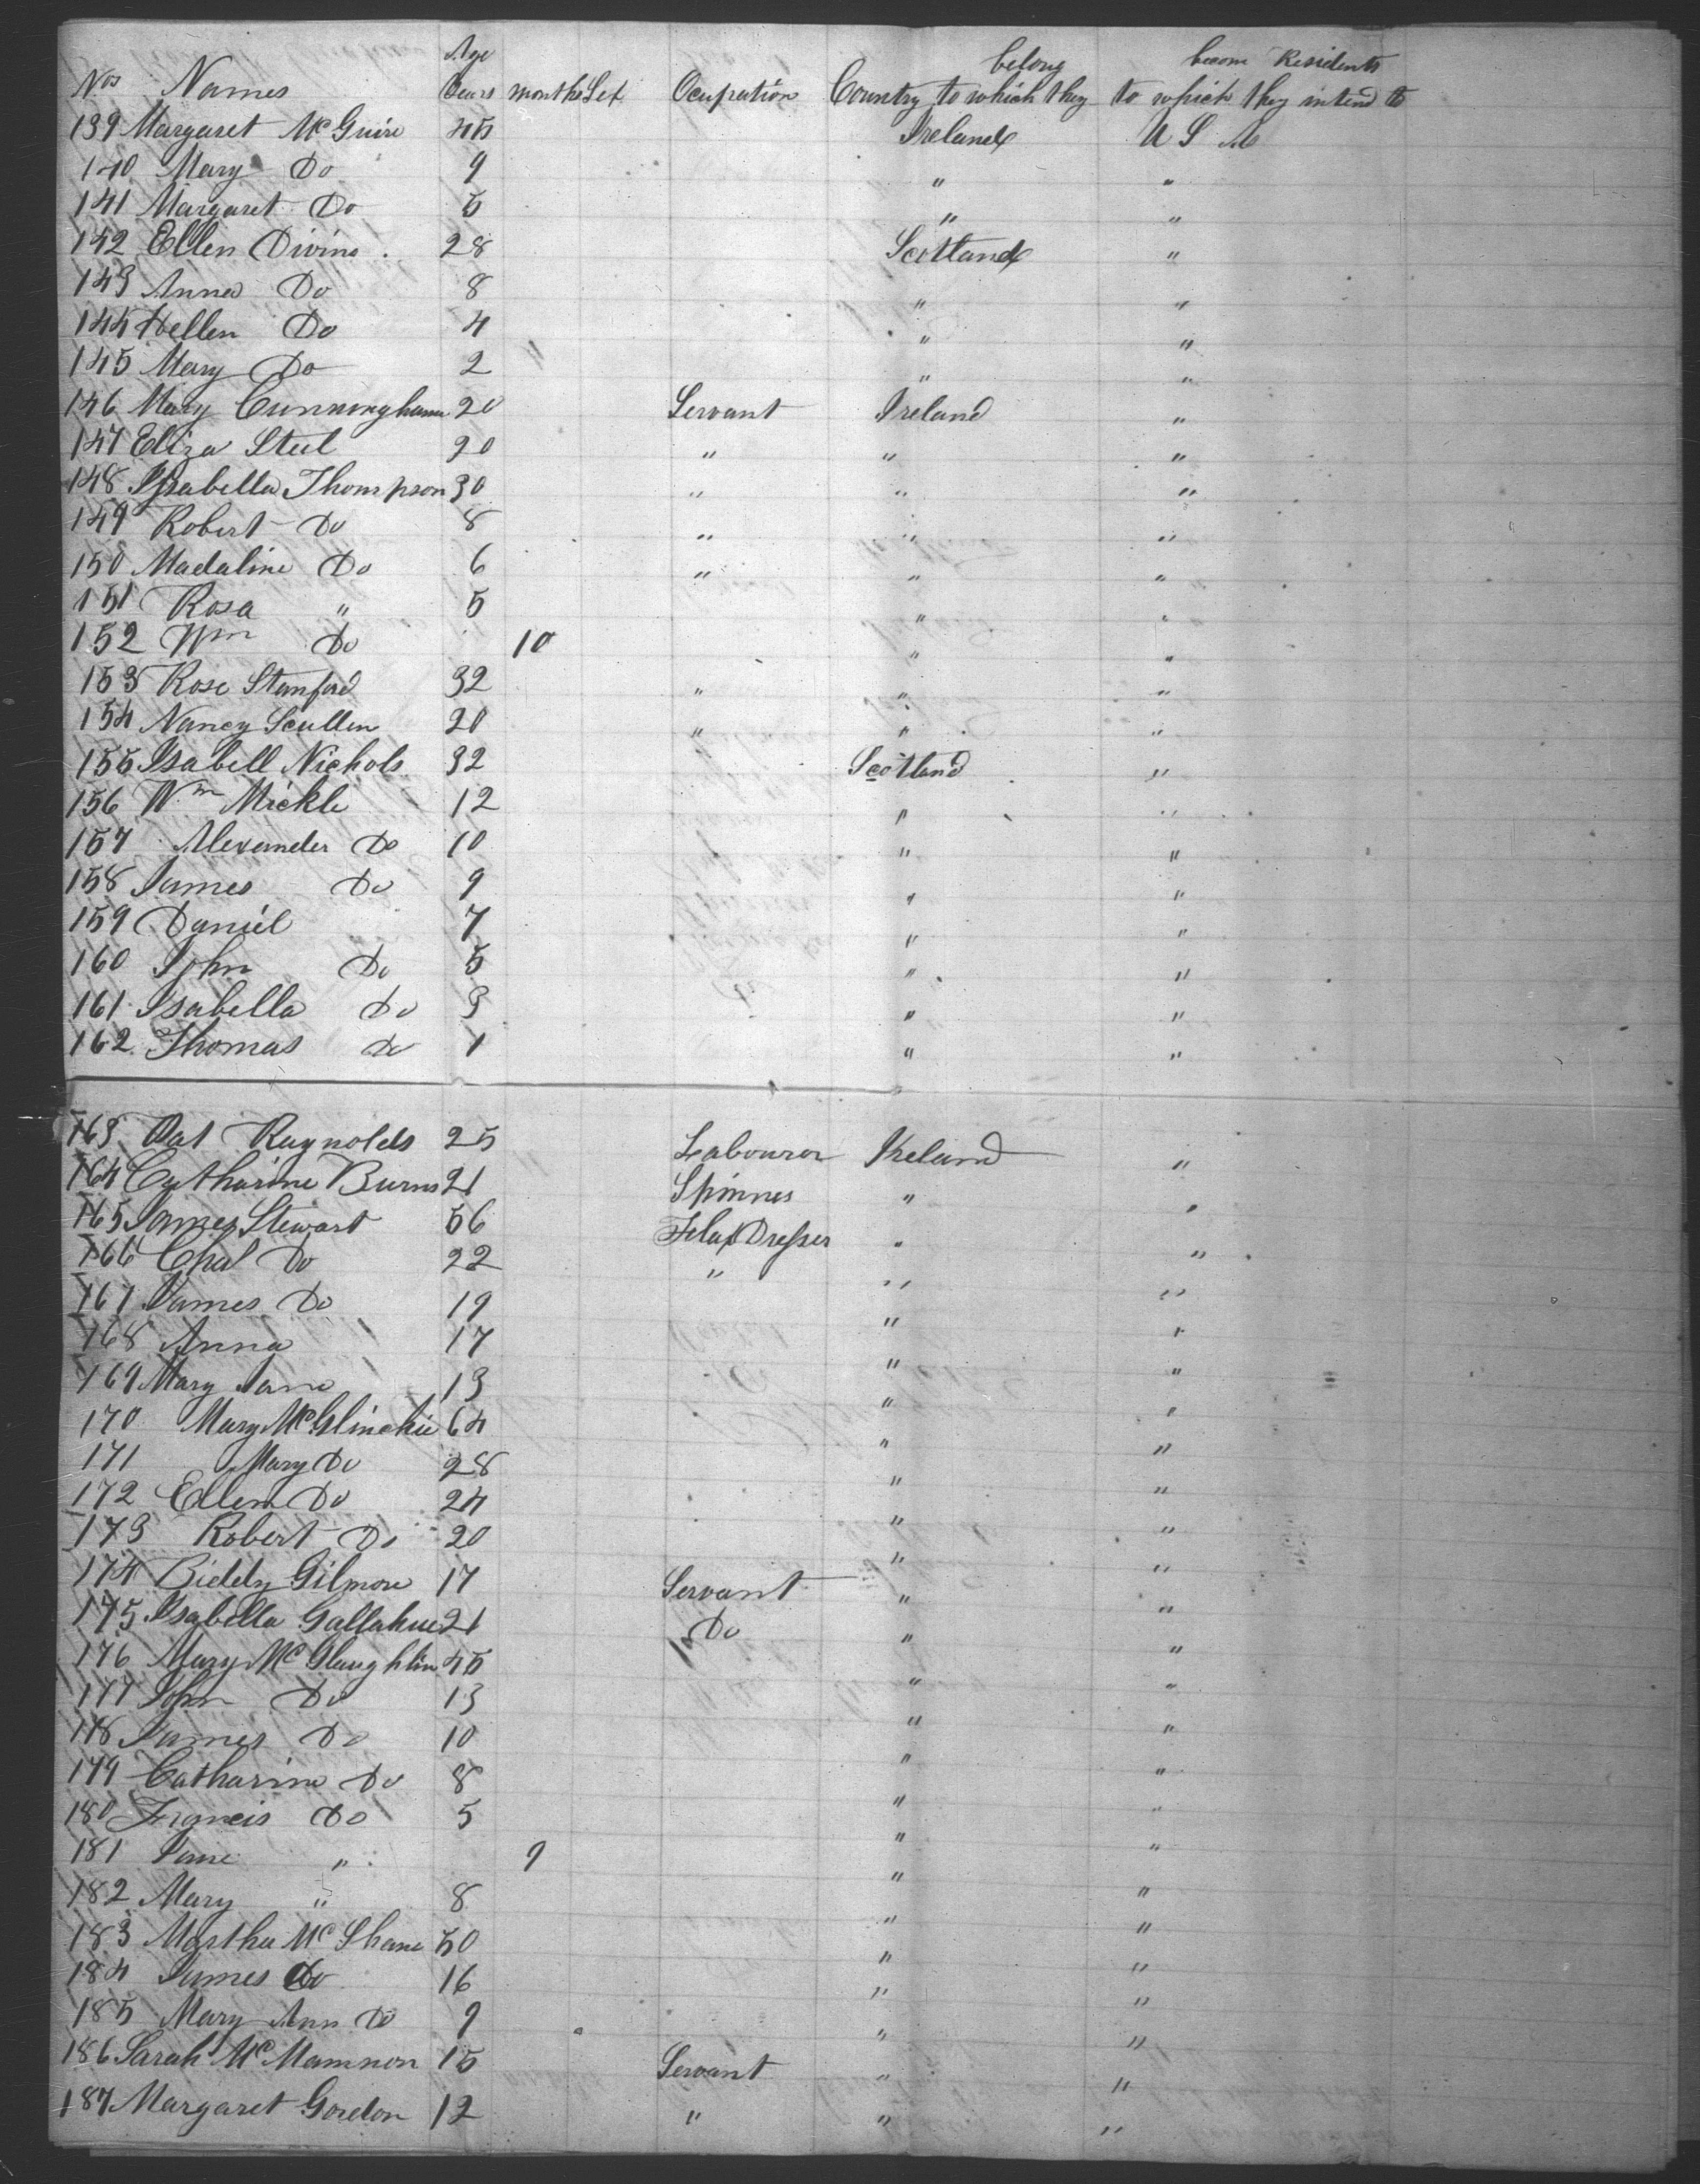 Age belong become Residents
Nos Names Years months Sex Ocupation Country to which they to which they intend to
139 Margaret McGuire 45 Ireland U S A
140 Mary Do 9 " "
141 Margaret Do 5 " "
142 Ellen Divine 28 Scotland "
143 Anna Do 8 " "
144 Hellen Do 4 " "
145 Mary Do 2 " "
146 Mary Cunningham 20 Servant Ireland "
147 Eliza Steel 20 " " "
148 Isabella Thompson 30 " " "
149 Robert Do 8 " " "
150 Madaline Do 6 " " "
151 Rosa " 5 " "
152 Wm Do 10 " "
153 Rose Stanford 32 " " "
154 Nancy Scullen 20 " " "
155 Isabell Nichols 32 Scotland "
156 Wm Mickle 12 " "
157 Alexander Do 10 " "
158 James Do 9 " "
159 Daniel 7 " "
160 John Do 5 " "
161 Isabella Do 3 " "
162 Thomas Do 1 " "
163 Pat Raynolds 25 Labourer Ireland "
164 Catharine Burns 21 Spinnes " "
165 James Stewart 56 Flax Dresser " "
166 Chal Do 22 " " "
167 James Do 19 " "
168 Anna 17 " "
169 Mary Jane 13 " "
170 Mary McGlinchie 64 " "
171 Mary Do 28 " "
172 Ellen Do 24 " "
173 Robert Do 20 " "
174 Biddy Gilmore 17 Servant " "
175 Isabella Gallahue 21 Do " "
176 Mary McGlaughlin 45 " "
177 John Do 13 " "
178 James Do 10 " "
179 Catharine Do 8 " "
180 Francis Do 5 " "
181 Jane " 9 " "
182 Mary " 8 " "
183 Martha McShane 50 " "
184 James Do 16 " "
185 Mary Ann Do 9 " "
186 Sarah McMamnon 15 Servant " "
187 Margaret Gordon 12 " " "